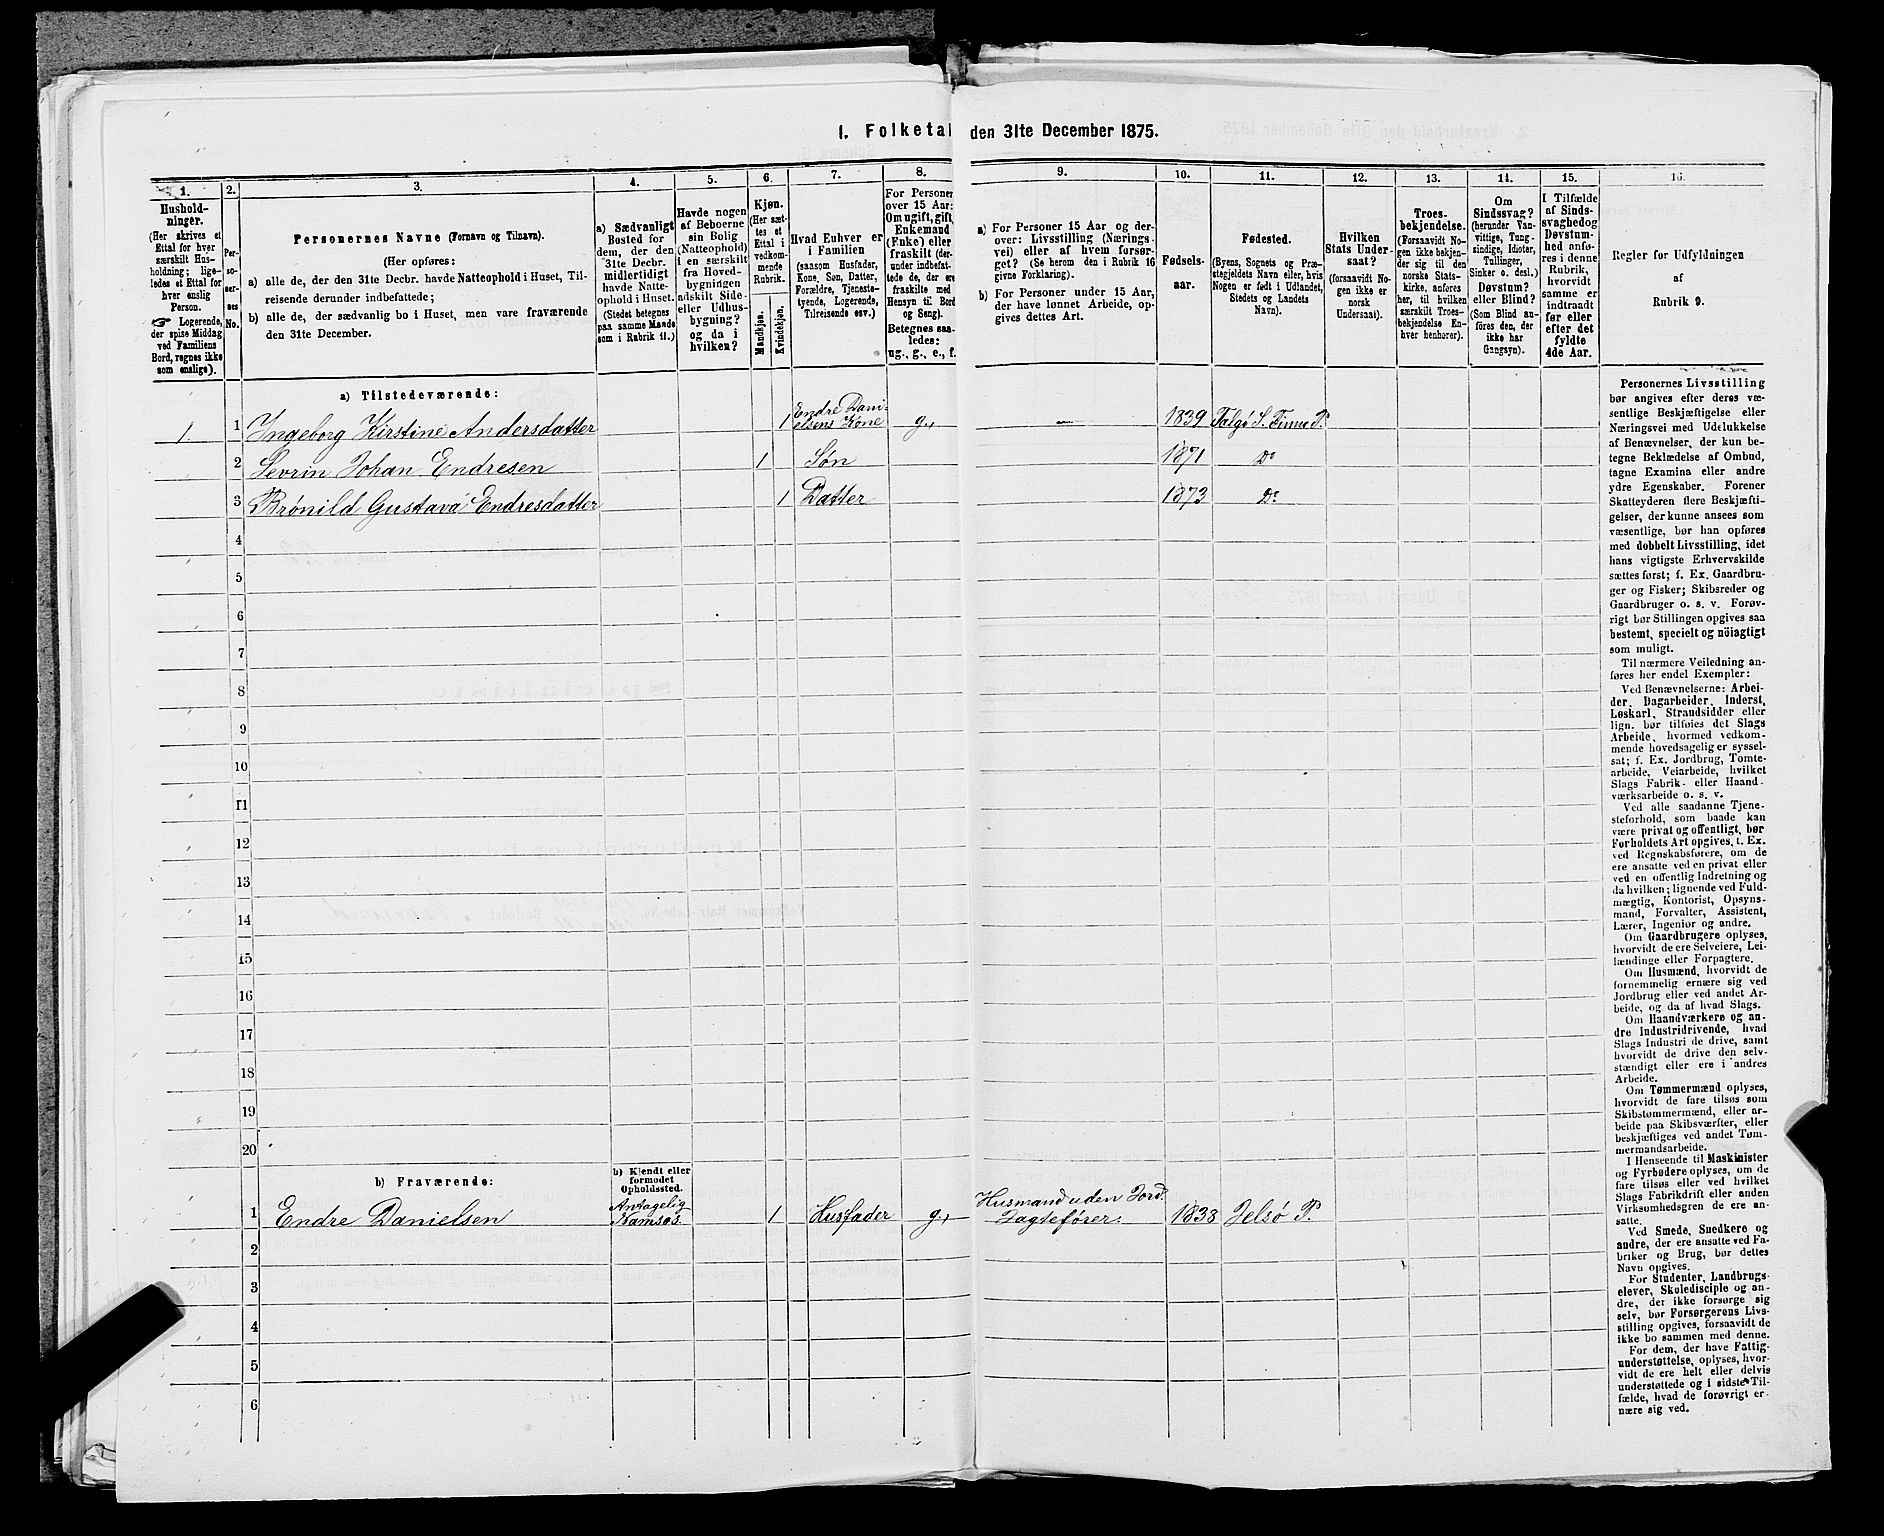 1. Folketal den 31te December 1875.
1.
Hushold-
ninger.
(Her skrives et
Ettal for hver
særskilt Hus-
holdning; lige-
ledes et Ettal for
hver enslig
Person.
Logerende,
der spise Middag
ved Familiens
Bord, regnes ikke
som enslige).
2.
Per-
so-
ner-
nes
No.
3.
Personernes Navne (Fornavn og Tilnavn).
(Her opføres:
a) alle de, der den 31te Decbr. havde Natteophold i Huset, Til-
reisende derunder indbefattede;
b) alle de, der sædvanlig bo i Huset, men vare fraværende
den 31te December.
4.
a) Sædvanligt
Bosted for
dem, der den
31te Decbr.
midlertidigt
havde Natte-
ophold i Huset.
(Stedet betegnes
paa samme Maade
som i Rubrik 11.)
5.
Havde nogen
af Beboerne
sin Bolig
(Natteophold)
i en særskilt
fra Hoved-
bygningen
adskilt Side-
eller Udhus-
bygning?
og da i
hvilken?
6.
Kjøn.
(Her sæt-
tes et
Ettal i
vedkom-
mende
Rubrik.
Mandkjøn.
Kvindekjøn.
7.
Hvad Enhver er
i Familien
(saasom Husfader,
Kone, Søn, Datter,
Forældre, Tjeneste-
tyende, Logerende,
Tilreisende osv.)
8.
For Personer
over 15 Aar:
Om ugift, gift,
Enkemand
(Enke) eller
fraskilt (der-
under indbefat-
tede de, der ere
fraskilte med
Hensyn til Bord
og Seng).
Betegnes saa-
ledes:
ug., g., e., f.
9.
a) For Personer 15 Aar og der-
over: Livsstilling (Nærings-
vei) eller af hvem forsør-
get? (Se herom den i Rubrik 16
givne Forklaring).
b) For Personer under 15 Aar,
der have lønnet Arbeide, op-
gives dettes Art.
10.
Fødsels-
aar.
11.
Fødested.
(Byens, Sognets og Præ-
stegjeldets Navn eller, hvis
Nogen er født i Udlandet,
Stedets og Landets
Navn).
12.
Hvilken
Stats Under-
saat?
(forsaavidt No-
gen ikke er
norsk
Undersaat).
13.
Troes-
bekjendelse.
(Forsaavidt No-
gen ikke bekjen-
der sig til den
norske Stats-
kirke, anføres
her, til hvilken
særskilt Troes-
bekjendelse En-
hver henhører).
14.
Om
Sindssvag?
(herunder Van-
vittige, Tung-
sindige, Idioter,
Tullinger,
Sinker o. desl.)
Døvstum?
eller Blind?
(Som Blind an-
føres den, der
ikke har
Gangsyn).
15.
I Tilfælde
af Sinds-
svaghed og
Døvstum-
hed anfø-
res i denne
Rubrik,
hvorvidt
samme er
indtraadt
før eller
efter det
fyldte
4de Aar.
16.
Regler for Udfyldningen
af
Rubrik 9.
a) Tilstedeværende:
1. 1 Ingeborg Kirstine Andersdatter 1 Endre Dani-
elsens Kone g., — 1839 Talgø S. Finnø P.
2 Sevrin Johan Endresen 1 Søn 1871 Do
3 Brønild Gustava Endresdatter 1 Datter 1873 Do
4
5
6
7
8
9
10
11
12
13
14
15
16
17
18
19
20
b) Fraværende:
b) Kjendt eller
formodet
Opholdssted.
1 Endre Danielsen Antagelig
Namsos. 1 Husfader g., Husmand uden Jord.
Jagtefører. 1838 Jelsø P.
2
3
4
5
6
Personernes Livsstilling
bør angives efter deres væ-
sentlige Beskjæftigelse eller
Næringsvei med Udelukkelse
af Benævnelser, der kun be-
tegne Beklædelse af Ombud,
tagne Examina eller andre
ydre Egenskaber. Forener
Skatteyderen flere Beskjæfti-
gelser, der kunne ansees som
væsentlige, bør han opføres
med dobbelt Livsstilling, idet
hans vigtigste Erhvervskilde
sættes først; f. Ex. Gaardbru-
ger og Fisker; Skibsreder og
Gaardbruger o. s. v. Forøv-
rigt bør Stillingen opgives saa
bestemt, specielt og nöiagtigt
som muligt.
Til nærmere Veiledning an-
føres her endel Exempler:
Ved Benævnelserne: Arbei-
der, Dagarbeider, Inderst,
Løskarl, Strandsidder eller
lign. bør tilføies det Slags
Arbeide, hvormed vedkom-
mende hovedsagelig er syssel-
sat; f. Ex. Jordbrug, Tomte-
arbeide, Veiarbeide, hvilket
Slags Fabrik- eller Haand-
værksarbeide o. s. v.
Ved alle saadanne Tjene-
steforhold, som baade kan
være privat og offentligt, bør
Forholdets Art opgives, t. Ex.
ved Regnskabsførere, om de
ere ansatte ved en privat eller
ved en offentlig Indretning og
da hvilken; lignende ved Fuld-
mægtig, Kontorist, Opsyns-
mand, Forvalter, Assistent,
Lærer, Ingeniør og andre.
Om Gaardbrugere oplyses,
hvorvidt de ere Selveiere, Lei-
lændinge eller Forpagtere.
Om Husmænd, hvorvidt de
fornemmelig ernære sig ved
Jordbrug eller ved andet Ar-
beide, og da af hvad Slags.
Om Haandværkere og an-
dre Industridrivende, hvad
Slags Industri de drive, samt
hvorvidt de drive den selv-
stændigt eller ere i andres
Arbeide.
Om Tømmermænd oplyses,
hvorvidt de fare tilsøs som
Skibstømmermænd, eller ar-
beide paa Skibsværfter, eller
beskjæftiges ved andet Tøm-
mermandsarbeide.
I Henseende til Maskinister
og Fyrbødere oplyses, om de
fare tilsøs eller ved hvilket
Slags Fabrikdrift eller anden
Virksomhedsgren de ere an-
satte.
Ved Smede, Snedkere og
andre, der ere ansatte ved Fa-
briker og Brug, bør dettes
Navn opgives.
For Studenter, Landbrugs-
elever, Skoledisciple og an-
dre, der ikke forsørge sig
selv, bør Forsørgerens Livs-
stilling opgives, forsaavidt de
ikke bo sammen med denne.
For dem, der have Fattig-
understøttelse, oplyses, hvor-
vidt de ere helt eller delvis
understøttede og i sidste Til-
fælde, hvad de forøvrigt er-
nære sig ved.